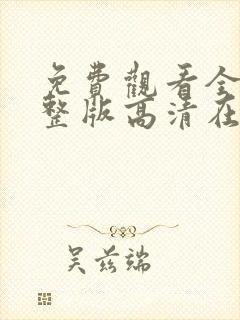 免費觀看全
整版高清在
吴兹端